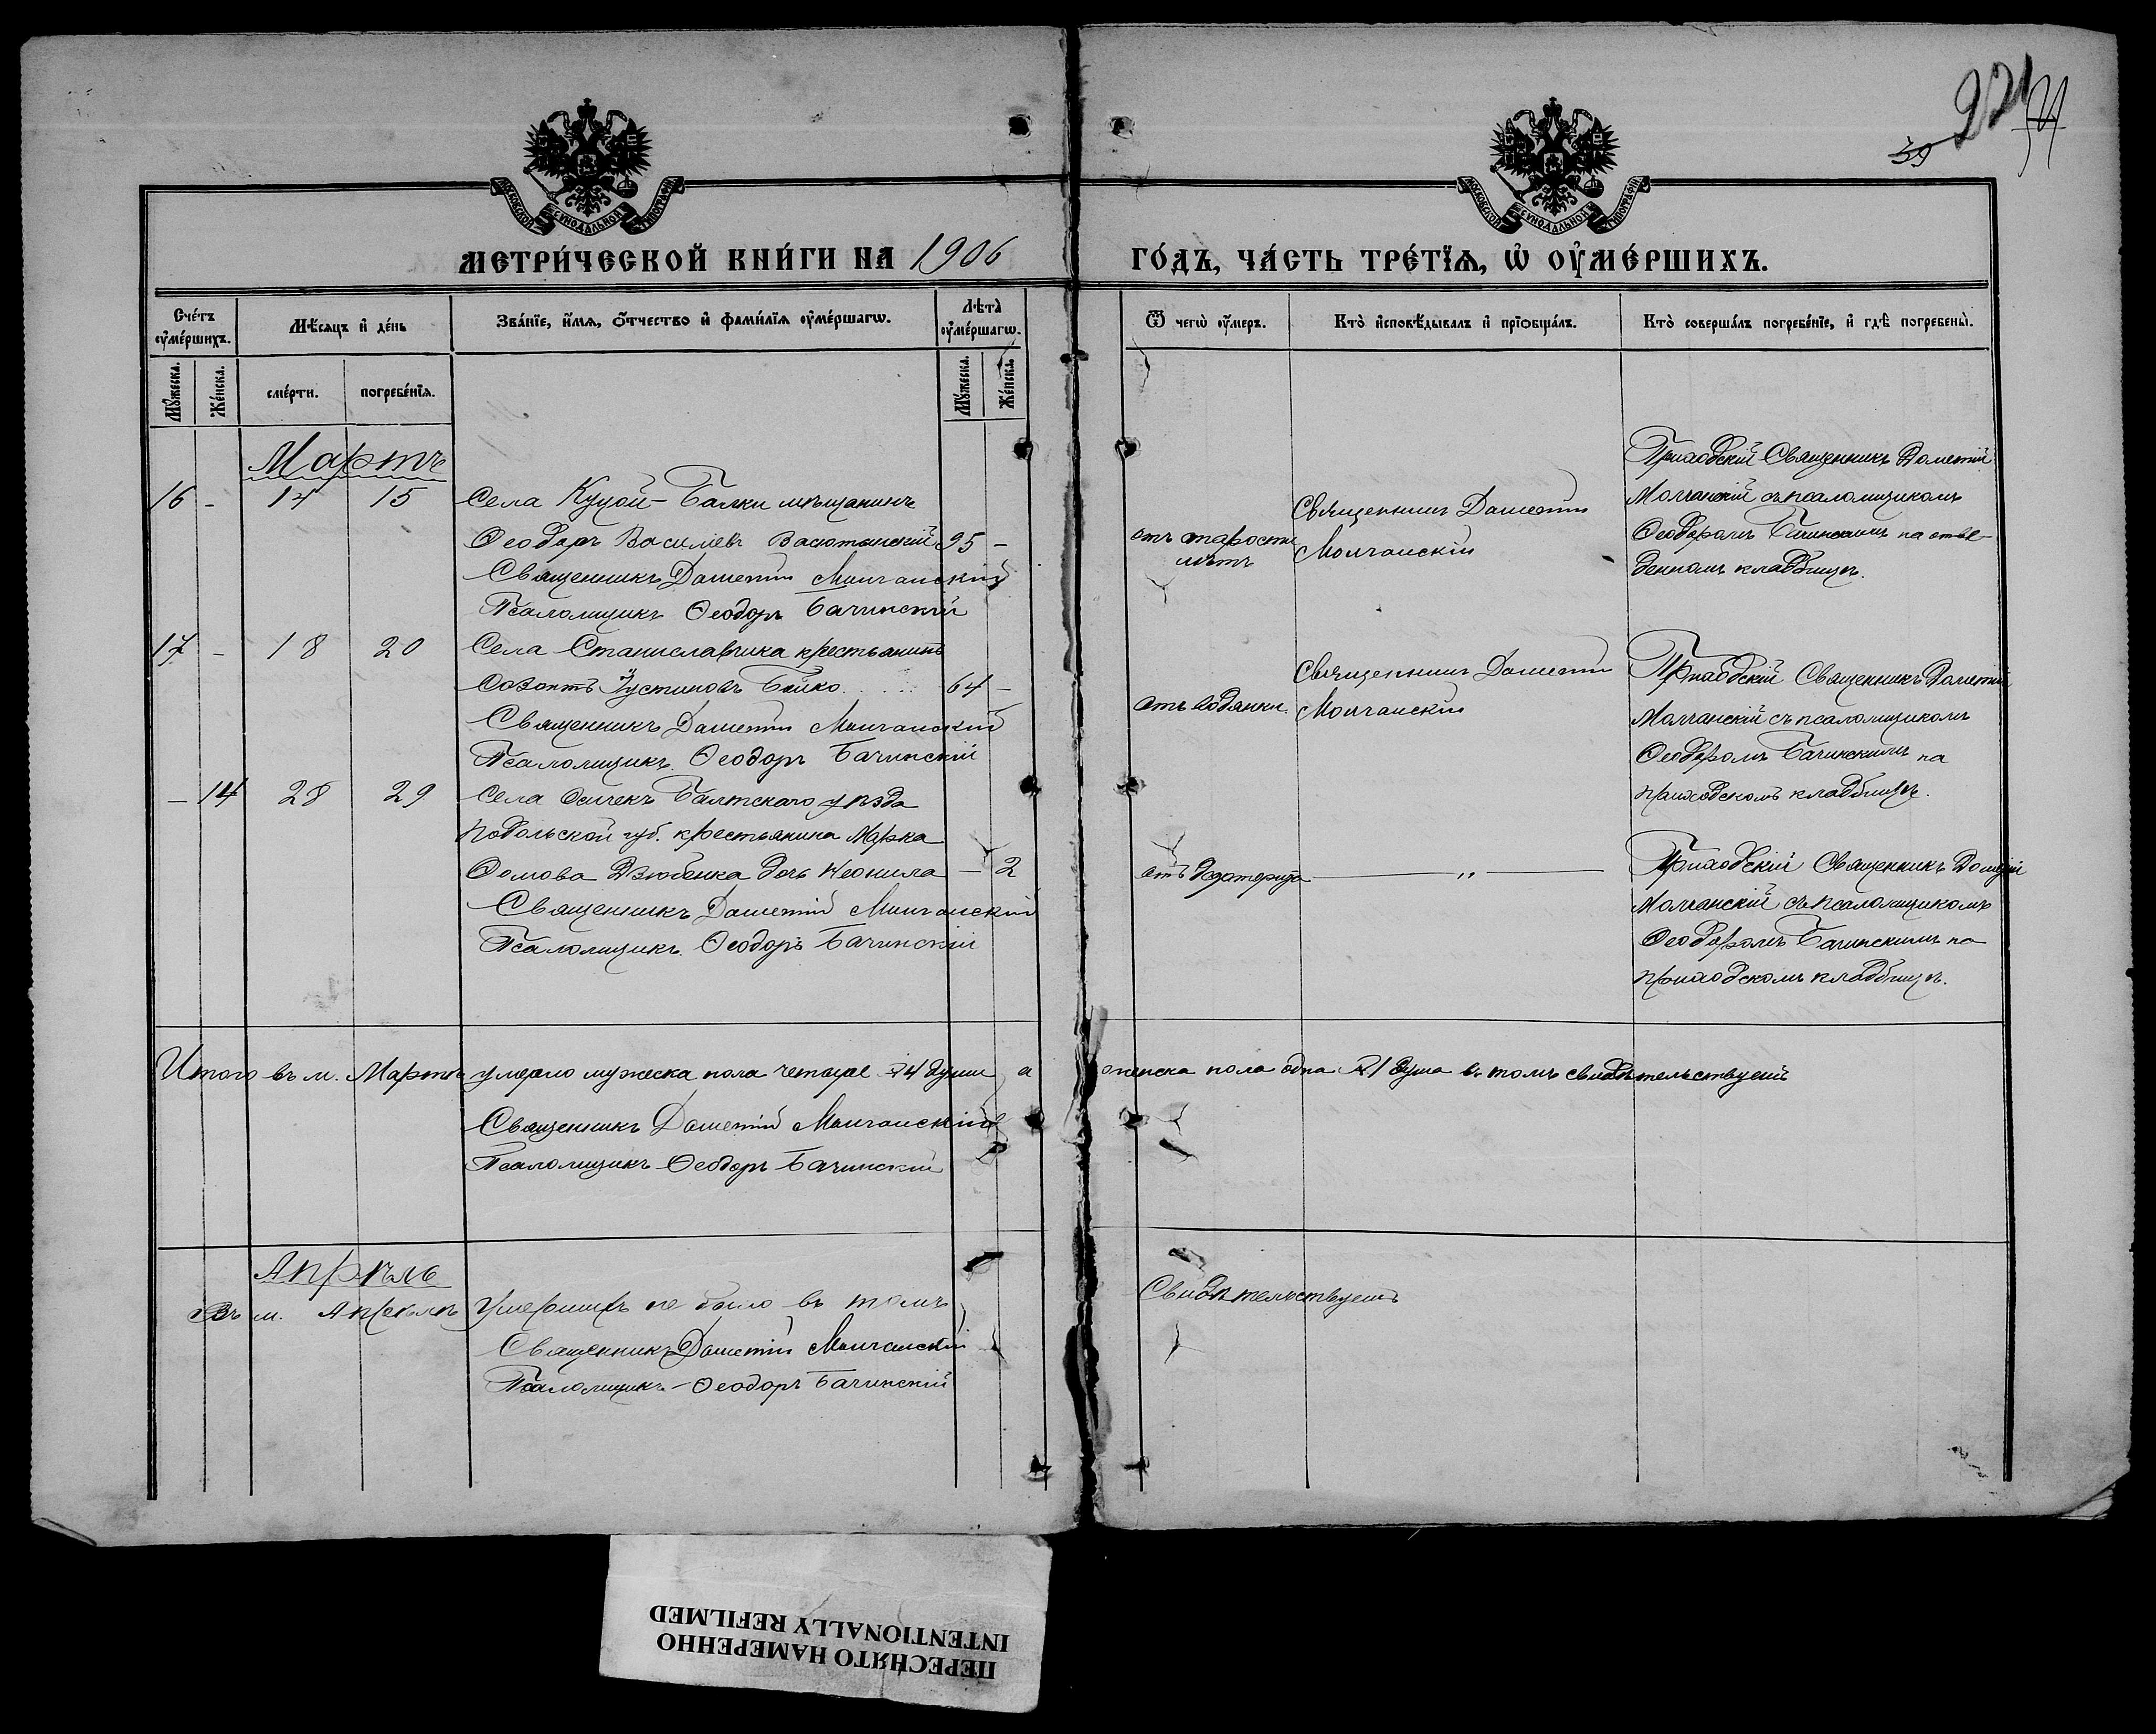 221
39
МОСКОВСКОЙ СУНОДАЛЬНОЙ ТИПОГРАФІИ
МОСКОВСКОЙ СУНОДАЛЬНОЙ ТИПОГРАФІИ
МЕТРИ́ЧЕСКОЙ КНИ́ГИ НА 1906 ГО́ДЪ, ЧА́СТЬ ТРЕ́ТЇѦ, Ѡ҆ ОУ҆МЕ́РШИХЪ.
Сче́тъ оу҆ме́ршихъ.
Мѣ́сѧцъ и҆ де́нь
Зва́нїе, и҆́мѧ, ѻ҆́тчество и҆ фами́лїѧ оу҆ме́ршагѡ.
Лѣ́та оу҆ме́ршагѡ.
Ѿ чегѡ̀ оу҆́меръ.
Кто̀ и҆сповѣ́дывалъ и҆ прїѡбща́лъ.
Кто̀ соверша́лъ погребе́нїе, и҆ гдѣ̀ погребены̀.
Мꙋ́жеска.
Же́нска.
сме́рти.
погребе́нїѧ.
Мꙋ́жеска.
Же́нска.
Мартъ
16 - 14 15 Села Куцой-Балки мѣщанинъ
Ѳеодоръ Василіевъ Васютынскій 95 -
Священникъ Дометій Молчанскій
Псаломщикъ Ѳеодоръ Бачинскій
отъ старости лѣтъ
Священникъ Дометій
Молчанскій
Приходскій Священникъ Дометій
Молчанскій съ псаломщикомъ
Ѳеодоромъ Бачинскимъ на отве-
денномъ кладбищѣ.
17 - 18 20 Села Станиславчика крестьянинъ
Созонтъ Іустиновъ Бойко 64 -
Священникъ Дометій Молчанскій
Псаломщикъ Ѳеодоръ Бачинскій
отъ водянки.
Священникъ Дометій
Молчанскій
Приходскій Священникъ Дометій
Молчанскій съ псаломщикомъ
Ѳеодоромъ Бачинскимъ на
приходскомъ кладбищѣ.
- 14 28 29 Села Осичекъ Балтскаго уѣзда
Подольской губ. крестьянина Марка
Ѳомова Дзюбенка дочь Неонила - 2
Священникъ Дометій Молчанскій
Псаломщикъ Ѳеодоръ Бачинскій
отъ дифтерита
— " —
Приходскій Священникъ Дометій
Молчанскій съ псаломщикомъ
Ѳеодоромъ Бачинскимъ на
приходскомъ кладбищѣ.
Итого въ м. Мартѣ умерло мужеска пола четыре 4 души, а женска пола одна 1 душа въ томъ свидѣтельствуемъ
Священникъ Дометій Молчанскій
Псаломщикъ Ѳеодоръ Бачинскій
Апрѣль
Въ м. Апрѣлѣ умершихъ не было въ томъ Свидѣтельствуемъ
Священникъ Дометій Молчанскій
Псаломщикъ - Ѳеодоръ Бачинскій
ПЕРЕСНЯТО НАМЕРЕННО
INTENTIONALLY REFILMED